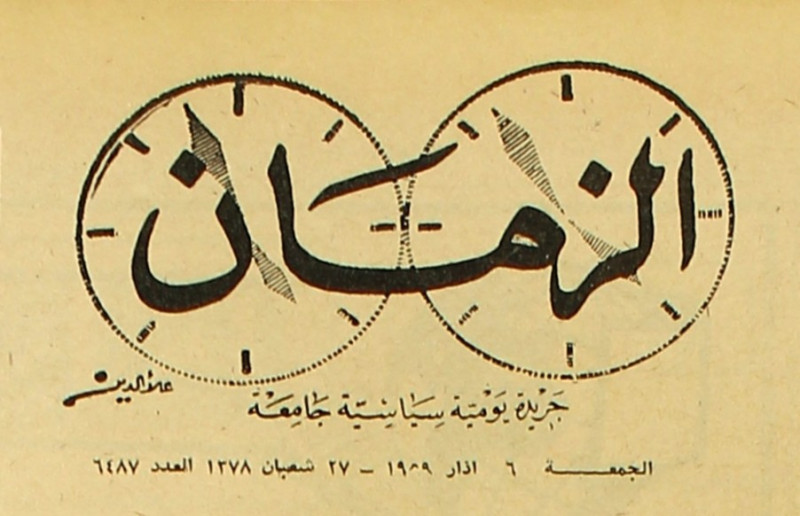 الزمان
علاؤالدين
جَرِيدة يَوْميّة سِيَاسِيّة جَامِعَة
الجمعـــــة ٦ اذار ١٩٥٩ – ٢٧ شعبان ١٣٧٨ العدد ٦٤٨٧